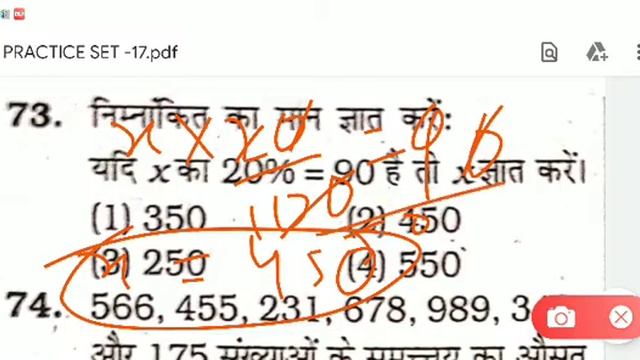 PRACTICE SET -17.pdf
73. निम्नांकित का मान ज्ञात करें:
x × 20 = 90
यदि x का 20% = 90 है तो x ज्ञात करें।
(1) 350 (2) 450
(3) 250 (4) 550
x = 450
74. 566, 455, 231, 678, 989, 3
और 175 संख्याओं के समुच्चय का औसत